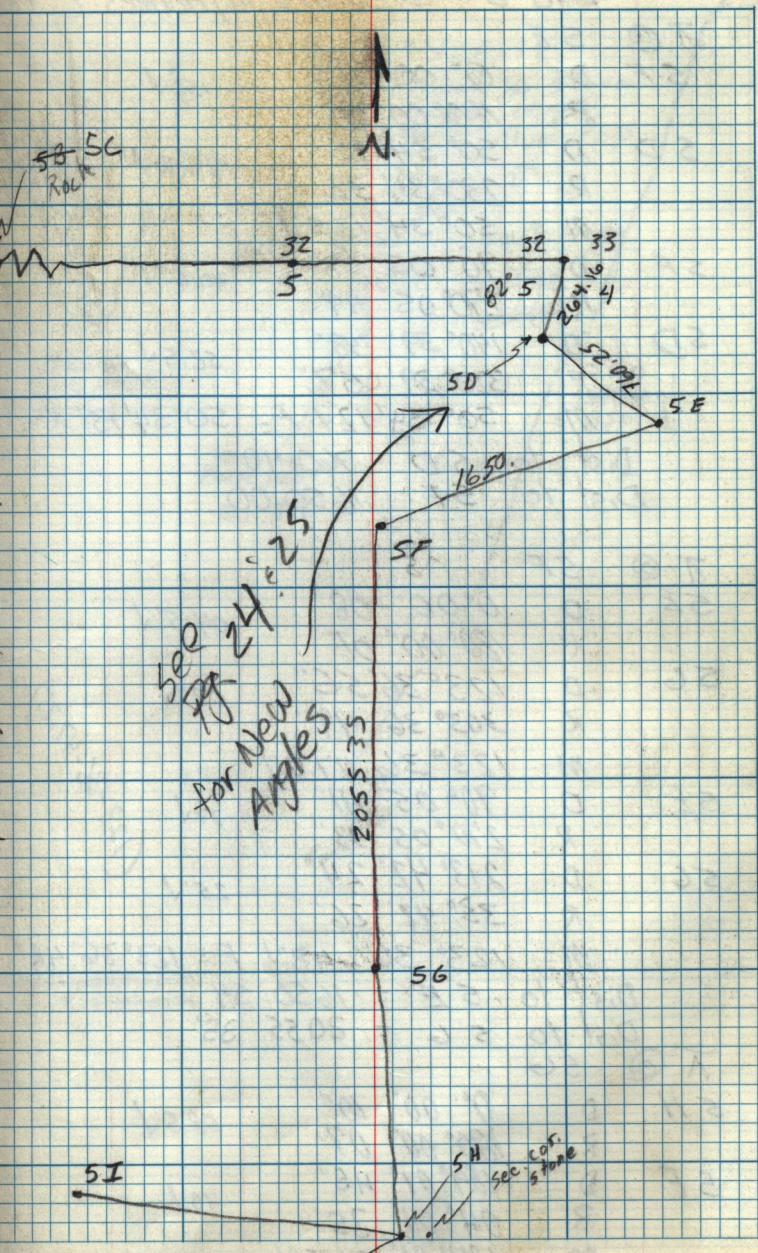 N.
5B 5C
Rock
32
5
32 33
82° 5 4
264.16
5D
760.25
5E
1650.
5F
See
Pg 24 & 25
for New
Angles
2055.35
5G
5H
sec. cor.
stone
5I